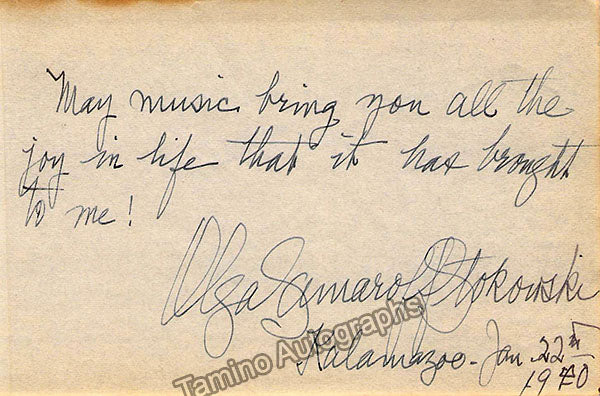 May music bring you all the
joy in life that it has brought
to me!
Olga Samaroff Stokowski
Kalamazoo - Jan. 22nd
1940.
Tamino Autographs